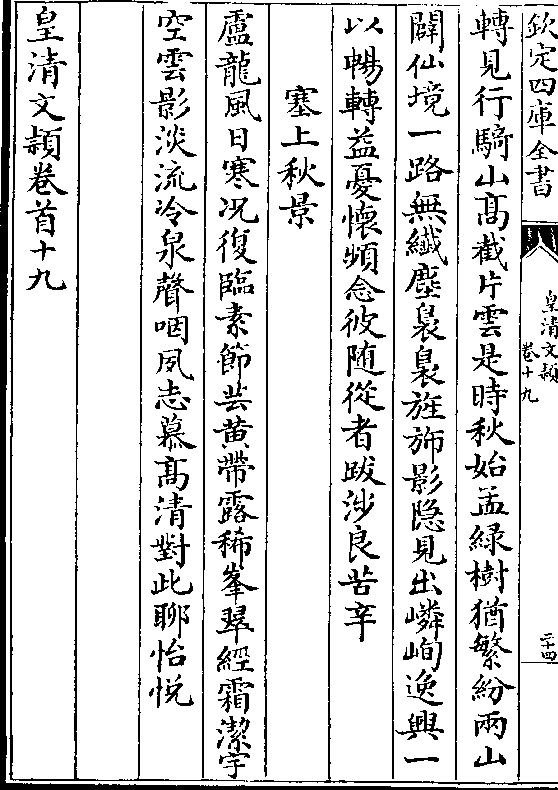 欽定四庫全書
皇清文穎
卷十九
三十四
轉見行騎山髙截片雲是時秋始孟緑樹猶繁紛兩山
闢仙境一路無纎塵裊裊旌斾影隐見出嶙峋逸興一
以暢轉益憂懐頻念彼随從者跋涉良苦辛
塞上秋景
盧龍風日寒况復臨素節芸黄帶露稀峯翠經霜潔宇
空雲影淡流冷泉聲咽夙志慕髙清對此聊怡悦
皇清文穎卷首十九